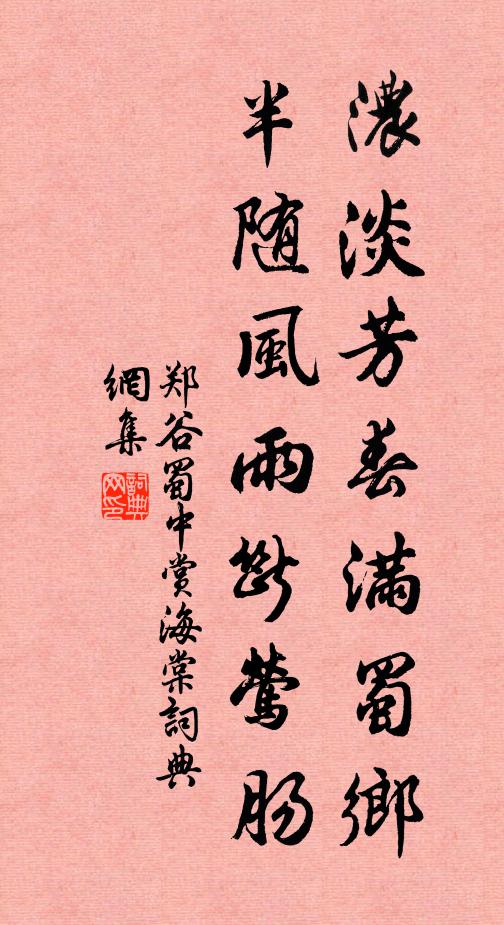 濃淡芳春滿蜀鄉
半随風雨斷鶯腸
郑谷蜀中赏海棠詞典
網集
詞典
网印